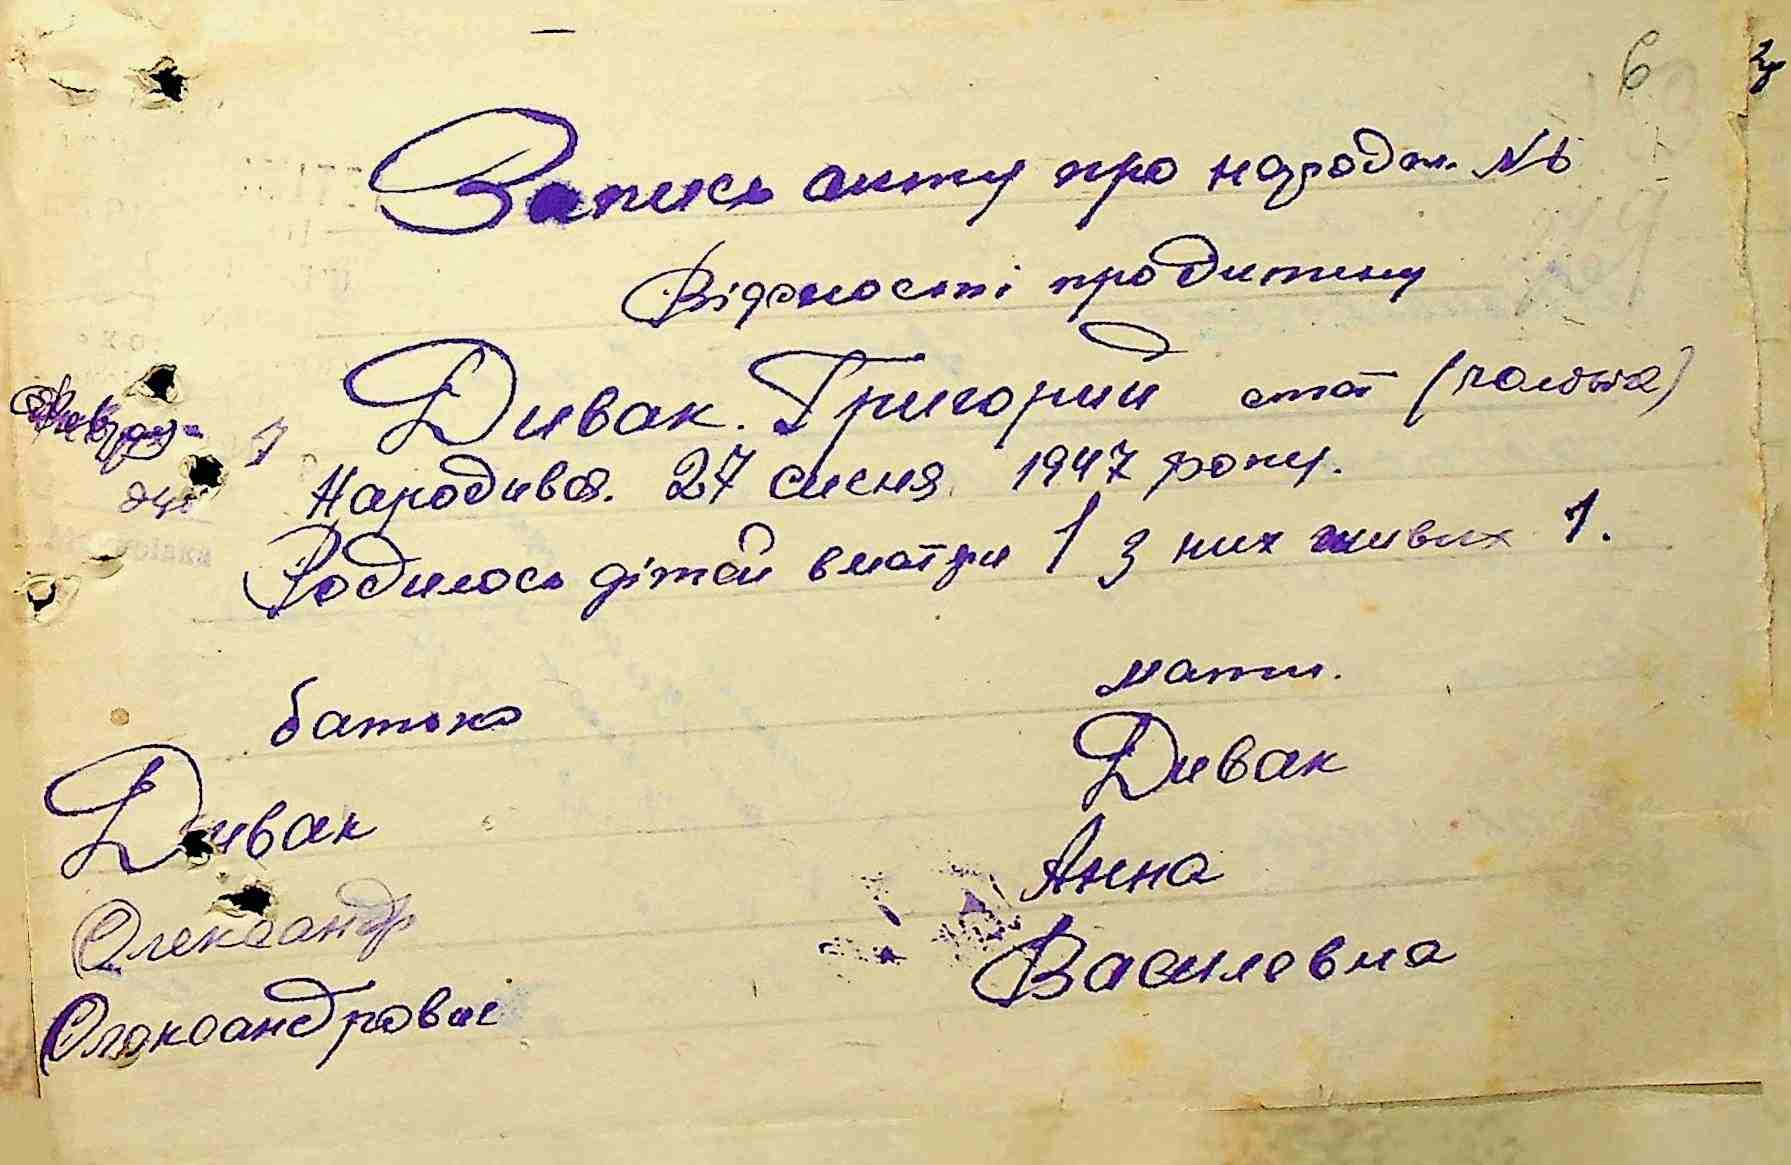 6
Запись акту про народж. №6
Відомості про дитину
Дивак. Григорий стат (чолова)
Народився. 27 сисня 1947 року.
Родилось дітей вматри 1 з них живих 1.
батько мати.
Дивак Дивак
Олександр Анна
Олександрович Василовна